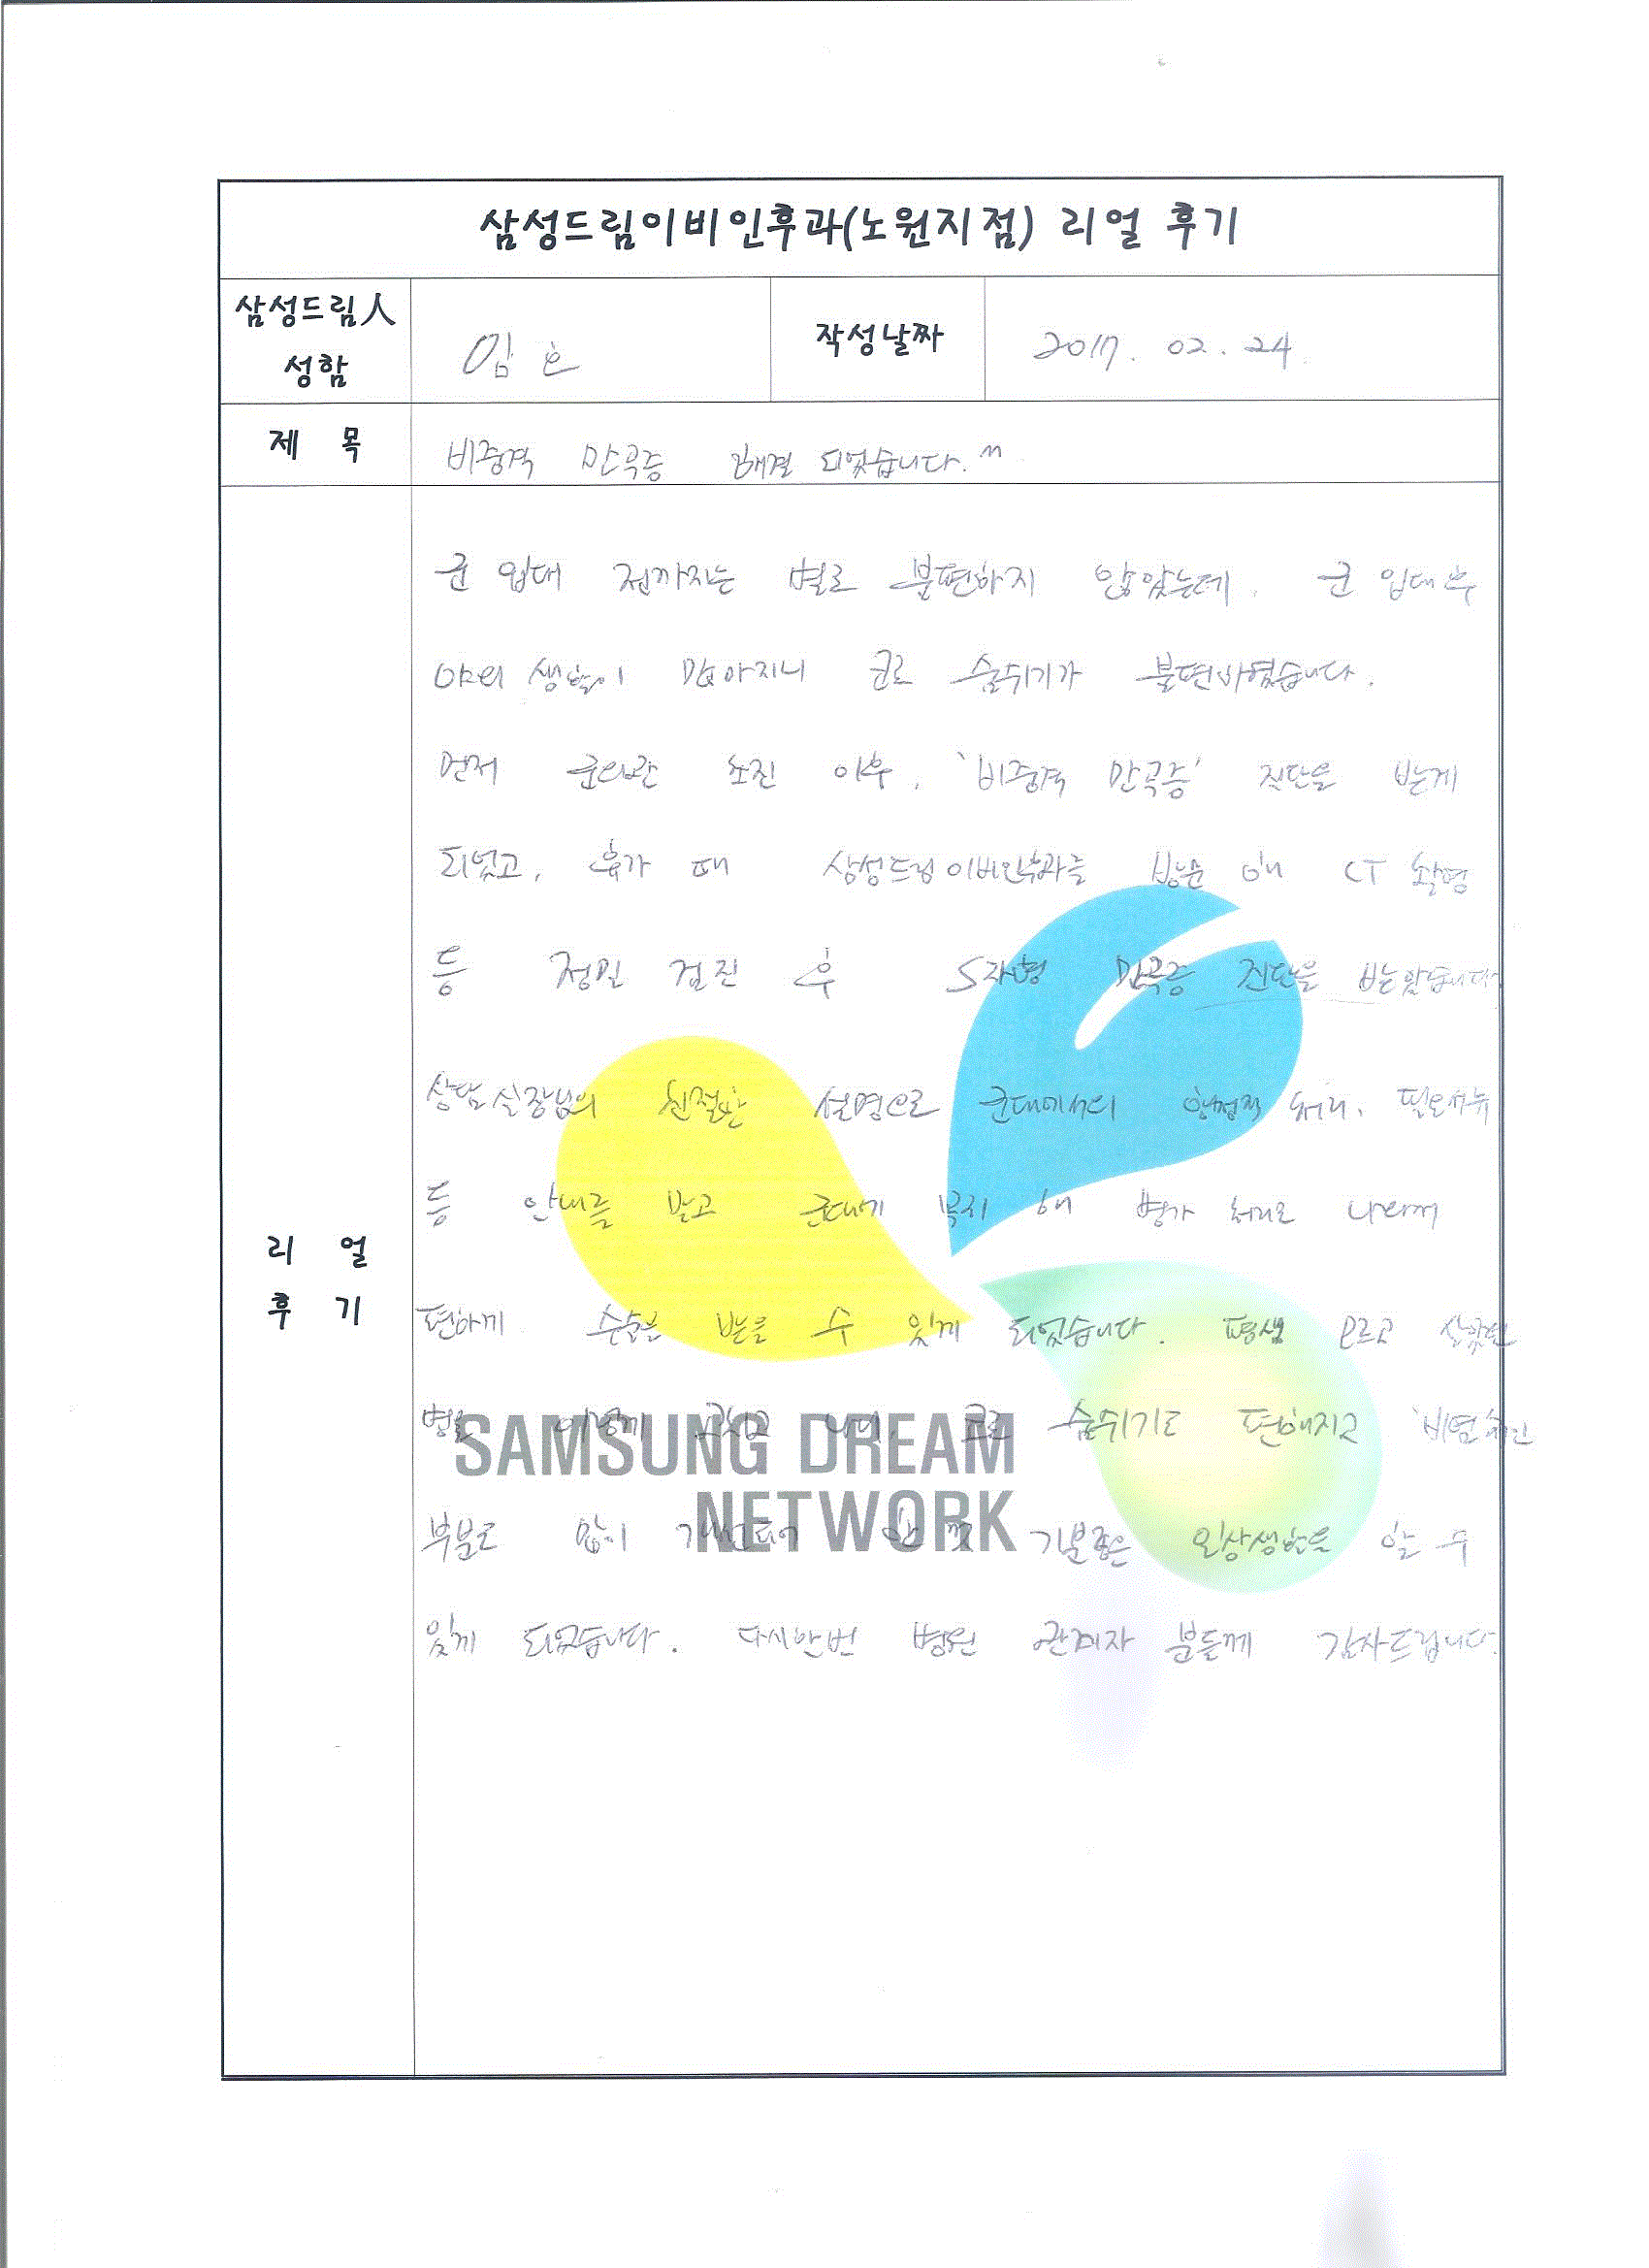 삼성드림이비인후과(노원지점) 리얼 후기
삼성드림人
성함
임
작성날짜
2017. 02. 24.
제 목
비중격 만곡증 해결 되었습니다.^^
군 입대 전까지는 별로 불편하지 않았는데, 군 입대 후
야외 생활이 많아지니 코로 숨쉬기가 불편하였습니다.
먼저 군의관 초진 이후, '비중격 만곡증' 진단을 받게
되었고, 휴가 때 삼성드림이비인후과를 방문 해 CT 촬영
등 정밀 검진 후 S자형 만곡증 진단을 받았습니다
상담실장님의 친절한 설명으로 군대에서의 행정적 처리, 필요서류
등 안내를 받고 군대에 복귀 해 병가 처리로 나와
편하게 수술을 받을 수 있게 되었습니다. 평생 모르고 살았던
병을 이렇게 고치고 나니, 코로 숨쉬기도 편해지고 '비염'
부분도 많이 개선되어 기분좋은 일상생활을 할 수
있게 되었습니다. 다시한번 병원 관계자 분들께 감사드립니다.
리 얼
후 기
SAMSUNG DREAM
NETWORK